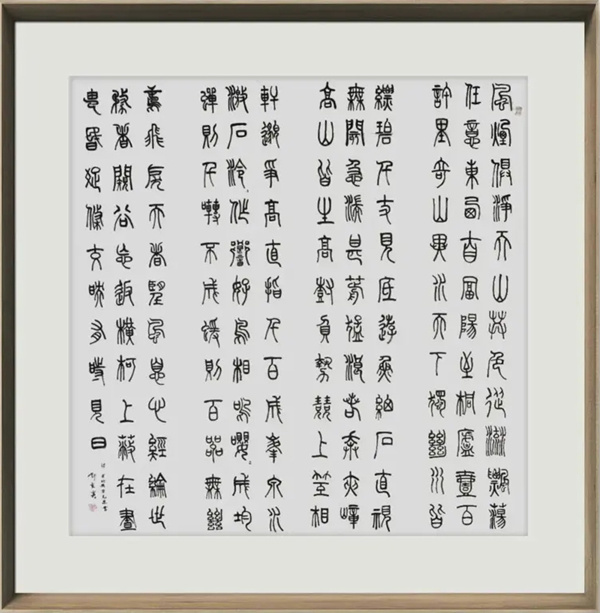 風煙俱淨天山共色從流飄蕩
任意東西自富陽至桐廬壹百
許里奇山異水天下獨絕水皆
縹碧千丈見底遊魚細石直視
無礙急湍甚箭猛浪若奔夾嶂
高山皆生高樹負勢競上互相
軒邈爭高直指千百成峯泉水
激石泠作響好鳥相鳴嚶成均
蟬則千轉不成猨則百叫無絕
鳶飛戾天者望峯息心經綸世
務者闚谷忘返橫柯上蔽在晝
猶昏疏條交映有時見日